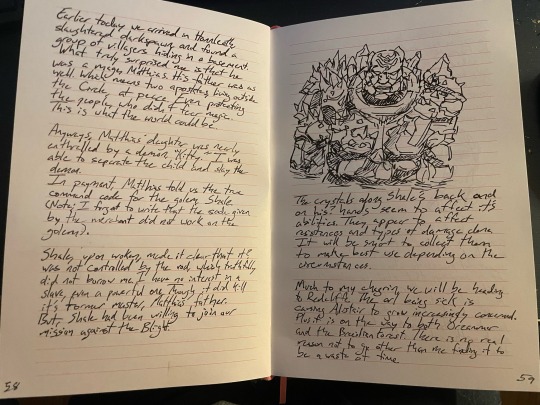 Earlier today we arrived in Honnleath,
slaughtered darkspawn and found a
group of villagers hiding in a basement.
What truly surprised me is that he
was a mage, Matthias. His father was as
well which means two apostates live outside
the Circle at peace even protecting
the people who didn't fear magic.
This is what the world could be.
Anyways, Matthias' daughter was nearly
enthralled by a demon, Kitty. I was
able to separate the child and slay the
demon.
In payment, Matthias told us the true
command code for the golem, Shale.
(Note: I forgot to write that the code given
by the merchant did not work on the
golem).
Shale, upon woken, made it clear that it
was not controlled by the rod, which truthfully
did not bother me. I have no interest in a
slave, even a powerful one. Though it did kill
it's former master, Matthias' father.
But, Shale had been willing to join our
mission against the Blight.
58
The crystals along Shale's back and
on his hands seem to affect it's
abilities. They appear to affect
resistances and types of damage done.
It will be smart to collect them
to make best use depending on the
circumstances.
Much to my chagrin, we will be heading
to Redcliffe. The arl being sick is
causing Alistair to grow increasingly concerned.
Plus it is on the way to both Orzammar
and the Brecilian forest. There is no real
reason not to go other than me finding it to
be a waste of time.
59